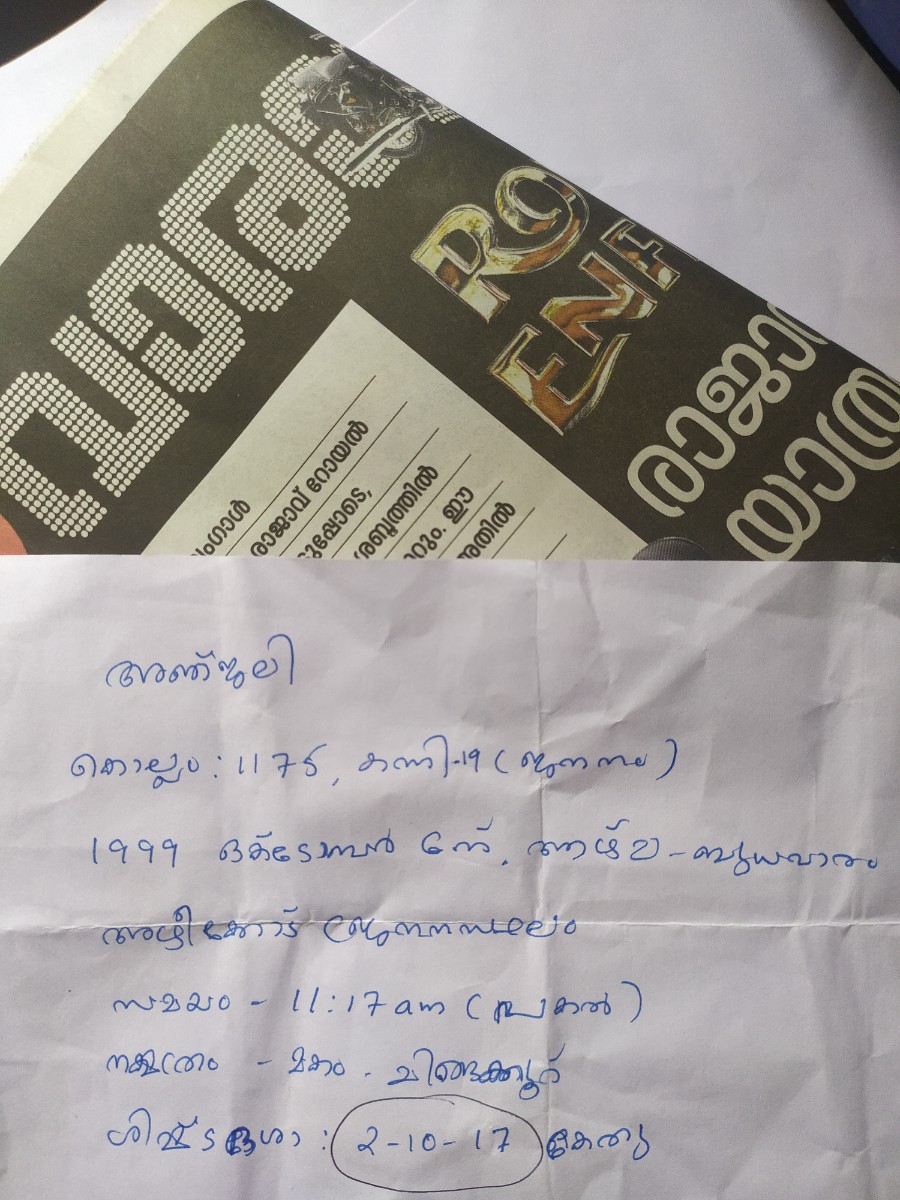 RO
ENF
രാജാ
യാത്രയ
ംഗാൾ
രാജാവ് റോയൽ
ശബ്ദത്തിൽ
റും. ഈ
അഞ്ജലി
കൊല്ലം : 1175, കന്നി-19 (ജനനം)
1999 ഒക്ടോമ്പർ 6ന്, ആഴ്ച - ബുധവാരം
അഴീക്കോട് (ജനനസ്ഥലം
സമയം - 11:17 am (പകൽ)
നക്ഷത്രം - മകം . ചിങ്ങക്കൂറ്
ശിഷ്ടദശാ : 2-10-17 കേതു